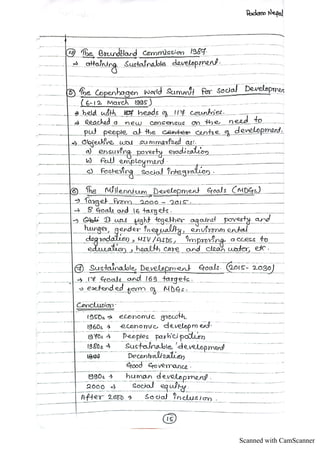 Padam Nepal
④ The Brundtland Commission 1987
→ attaining Sustainable development.
⑤ The Copenhagen World Summit For Social Development
(6-12 March 1995)
* held with 117 heads of 117 countries.
→ Reached a new consensus on the need to
put people at the centre of development.
→ Objective was summarised as:
a) ensuring poverty eradication
b) Full employment
c) Fostering social integration.
⑥ The Millennium Development Goals (MDGs)
→ Target from 2000 - 2015.
→ 8 Goals and 18 targets.
→ It was fight together against poverty and
hunger, gender inequality, environmental
degradation, HIV/AIDS, improving access to
education, health care and clean water, etc.
⑦ Sustainable Development Goals (2015-2030)
→ 17 Goals and 169 targets.
→ extended form of MDGs.
Conclusion:
1950s → economic growth
1960s → economic development
1970s → Peoples participation
1980s → Sustainable development
Decentralization
Good Governance
1990s → human development
2000 → Social equity
After 2010 → Social inclusion.
15
Scanned with CamScanner